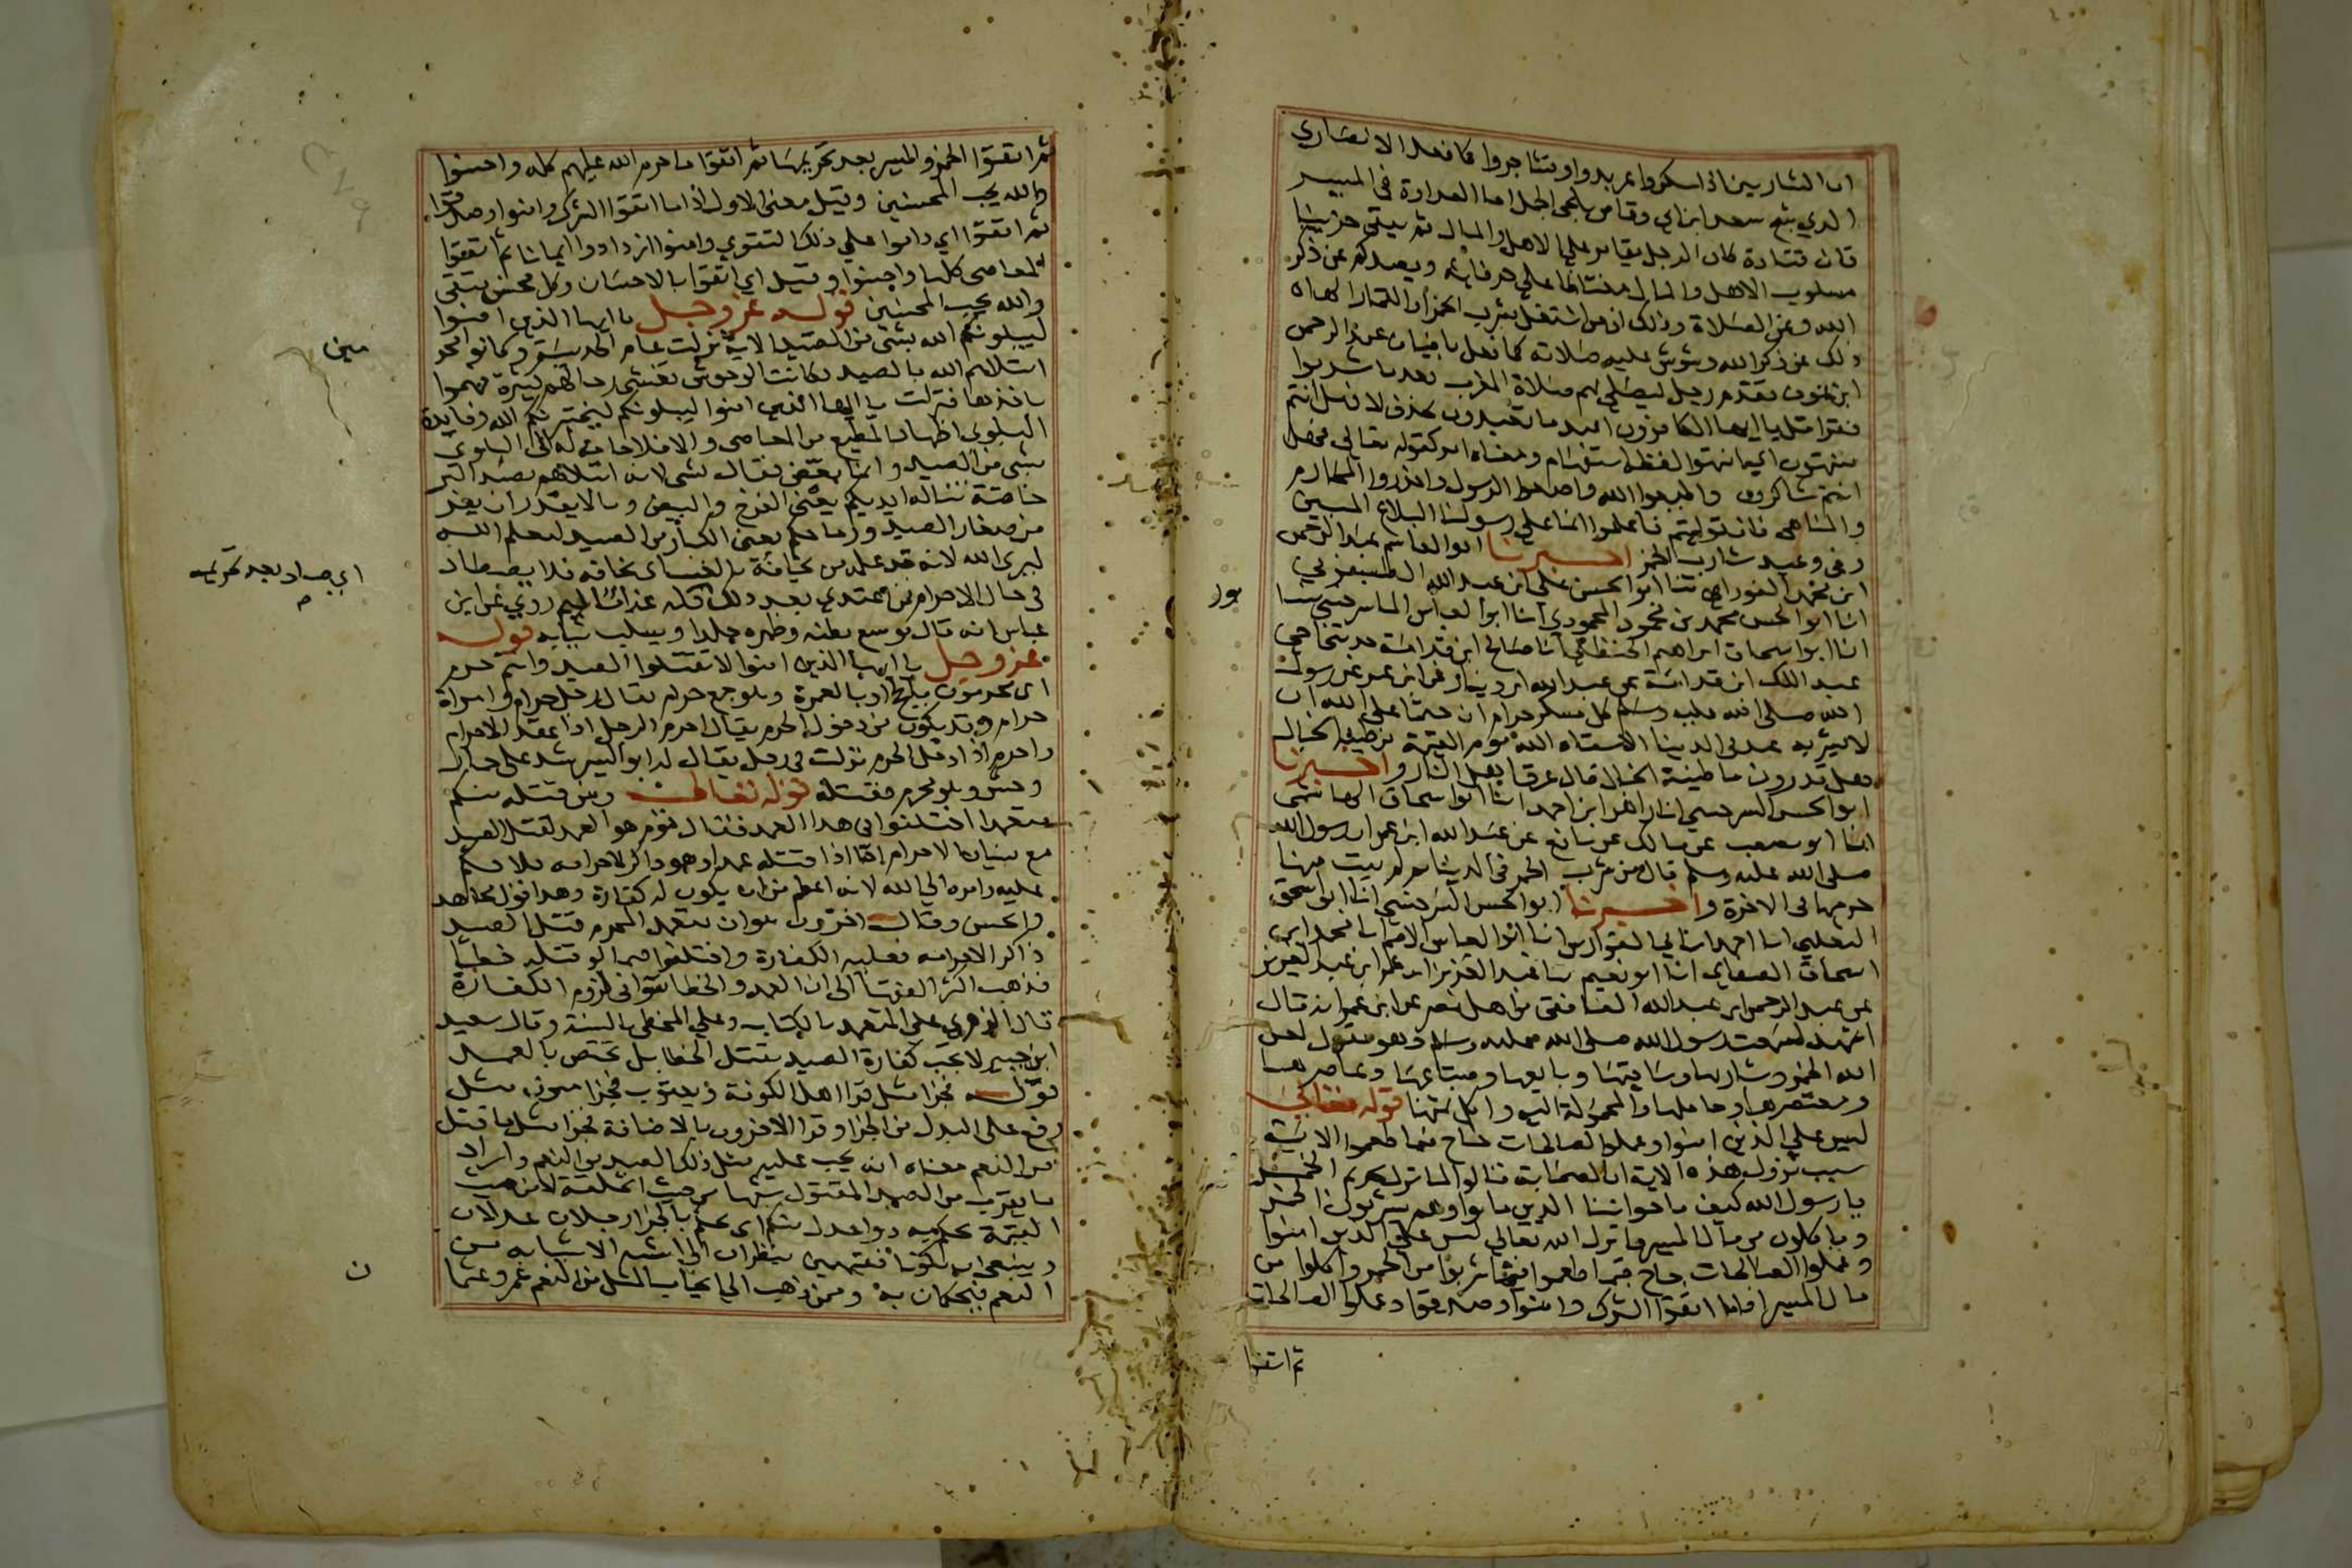 ان الشاربين اذا سكروا عربدوا وتشاجروا كما فعل الانصاري
الذي شج سعد ابن ابي وقاص بلحي الجمل اما العداوة في الميسر
قال قتادة كان الرجل يقامر علي الاهل والمال ثم يبقي حزينا
مسلوب الاهل والمال مغتاظا علي حرفايه ويصدكم عن ذكر
الله وعن الصلاة وذلك ان من اشتغل بشرب الخمر او القمار الهاه
ذلك عن ذكر الله وشوش عليه صلاته كما فعل باضياف عبد الرحمن
ابن عوف تقدم رجل ليصلي بهم صلاة المغرب بعد ما شربوا
فقرا قل يا ايها الكافرون اعبد ما تعبدون بحذف لا فهل انتم
منتهون اي انتهوا لفظه استفهام ومعناه امر كقوله تعالي فهل
انتم شاكرون واطيعوا الله واطيعوا الرسول واحذروا المحارم
والمناهي فان توليتم فاعلموا انما علي رسولنا البلاغ المبين
وفي وعيد شارب الخمر اخبرنا ابو القاسم عبد الرحمن
ابن محمد الفوراني ثنا ابو الحسن علي ابن عبد الله الطيسفوني
انا ابو الحسن محمد بن محمود المحمودي انا ابو العباس الماسرجسي ثنا
انا ابو اسحاق ابراهيم الحنظلي انا صالح ابن قدامة حدثنا اخي
عبد الملك ابن قدامة عن عبد الله ابن دينار عن ابن عمر عن رسول
الله صلي الله عليه وسلم كل مسكر حرام ان حتما علي الله ان
لا يشربه عبد في الدنيا الا سقاه الله يوم القيمة من طينة الخبال
هل تدرون ما طينة الخبال قال عرق اهل النار واخبرنا
ابو الحسن السرخسي انا زاهر ابن احمد انا ابو اسحاق الهاشمي
انا ابو مصعب عن مالك عن نافع عن عبد الله ابن عمر ان رسول الله
صلي الله عليه وسلم قال من شرب الخمر في الدنيا ثم لم يتب منها
حرمها في الاخرة واخبرنا ابو الحسن السرخسي انا ابو اسحق
الثعلبي انا احمد ابن ابي الفوارس انا ابو العباس الاصم انا محمد ابن
اسحاق الصغاني انا ابو نعيم نا عبد العزيز ابن عمر ابن عبد العزيز
عن عبد الرحمن ابن عبد الله الغافقي من اهل مصر عن ابن عمر انه قال
اشهد لسمعت رسول الله صلي الله عليه وسلم وهو يقول لعن
الله الخمر وشاربها وساقيها وبايعها ومبتاعها وعاصرها
ومعتصرها وحاملها والمحمولة اليه واكل ثمنها قوله تعالي
ليس علي الذين امنوا وعملوا الصالحات جناح فيما طعموا الاية
سبب نزول هذه الاية ان الصحابة قالوا لما نزل تحريم الخمر
يا رسول الله كيف باخواننا الذين ماتوا وهم يشربون الخمر
وياكلون من مال الميسر فانزل الله تعالي ليس علي الذين امنوا
وعملوا الصالحات جناح فيما طعموا فيما شربوا من الخمر واكلوا من
مال الميسر اذا ما اتقوا الشرك وامنوا وصدقوا وعملوا الصالحات
ثم اتقوا
ثم اتقوا الخمر والميسر بعد تحريمهما ثم اتقوا ما حرم الله عليهم كله واحسنوا
والله يحب المحسنين وقيل معني الاول اذا ما اتقوا الشرك وامنوا وصدقوا
ثم اتقوا اي داموا علي ذلك التقوي وامنوا ازدادوا ايمانا ثم اتقوا
المعاصي كلها واحسنوا وقيل اي اتقوا بالاحسان وكل محسن متقي
والله يحب المحسنين قوله عز وجل يا ايها الذين امنوا
ليبلونكم الله بشي من الصيد الاية نزلت عام الحديبية وكانوا محر
مين
ابتلاهم الله بالصيد وكانت الوحوش تغشي رحالهم كثيرة فهموا
باخذها فنزلت يا ايها الذين امنوا ليبلونكم ليختبرنكم الله وفايدة
البلوي اظهار المطيع من العاصي والا فلا حاجة له الي البلوي
بشي من الصيد وانما بعض فقال بشي لانه ابتلاهم بصيد البر
خاصة تناله ايديكم يعني الفرخ والبيض وما لا يقدر ان يفر
من صغار الصيد ورماحكم يعني الكبار من الصيد ليعلم الله
ليري الله لانه قد علمه من يخافه بالغيب اي يخافه فلا يصطاد
في حال الاحرام فمن اعتدي بعد ذلك فله عذاب اليم روي عن ابن
اي صاد بعد تحريمه
عباس انه قال يوسع بطنه وظهره جلدا ويسلب ثيابه قوله
عز وجل يا ايها الذين امنوا لا تقتلوا الصيد وانتم حرم
اي محرمون بالحج او بالعمرة وهو جمع حرام يقال رجل حرام وامراة
حرام وقد يكون من دخول الحرم يقال احرم الرجل اذا عقد الاحرام
واحرم اذا دخل الحرم نزلت في رجل يقال له ابو اليسر شد علي حمار
وحش وهو محرم فقتله قوله تعالي ومن قتله منكم
متعمدا اختلفوا في هذا العمد فقال قوم هو العمد لقتل الصيد
مع نسيان الاحرام اما اذا قتله عمدا وهو ذاكر لاحرامه فلا حكم
عليه وامره الي الله لانه اعظم من ان يكون له كفارة وهذا قول مجاهد
والحسن وقال اخرون هو ان يتعمد المحرم قتل الصيد
ذاكرا لاحرامه فعليه الكفارة واختلفوا فيما لو قتله خطا
فذهب اكثر الفقها الي ان العمد والخطا سوا في لزوم الكفارة
قال الزهري علي المتعمد بالكتاب وعلي المخطي بالسنة وقال سعيد
ابن جبير لا يجب كفارة الصيد بقتل الخطا بل تختص بالعمد
قوله فجزا مثل قرا اهل الكوفة ويعقوب فجزا منون مثل
رفع علي البدل من الجزا وقرا الاخرون بالاضافة فجزا مثل ما قتل
من النعم معناه انه يجب عليه مثل ذلك الصيد من النعم واراد
ما يقرب من الصيد المقتول شبها من حيث الخلقة لا من حيث
القيمة يحكم به ذوا عدل منكم اي يحكم بالجزا رجلان عدلان
وينبغي ان يكونا فقيهين ينظران الي اشبه الاشيا به من
النعم فيحكمان به وممن ذهب الي ايجاب المثل من النعم عمر وعثما
ن